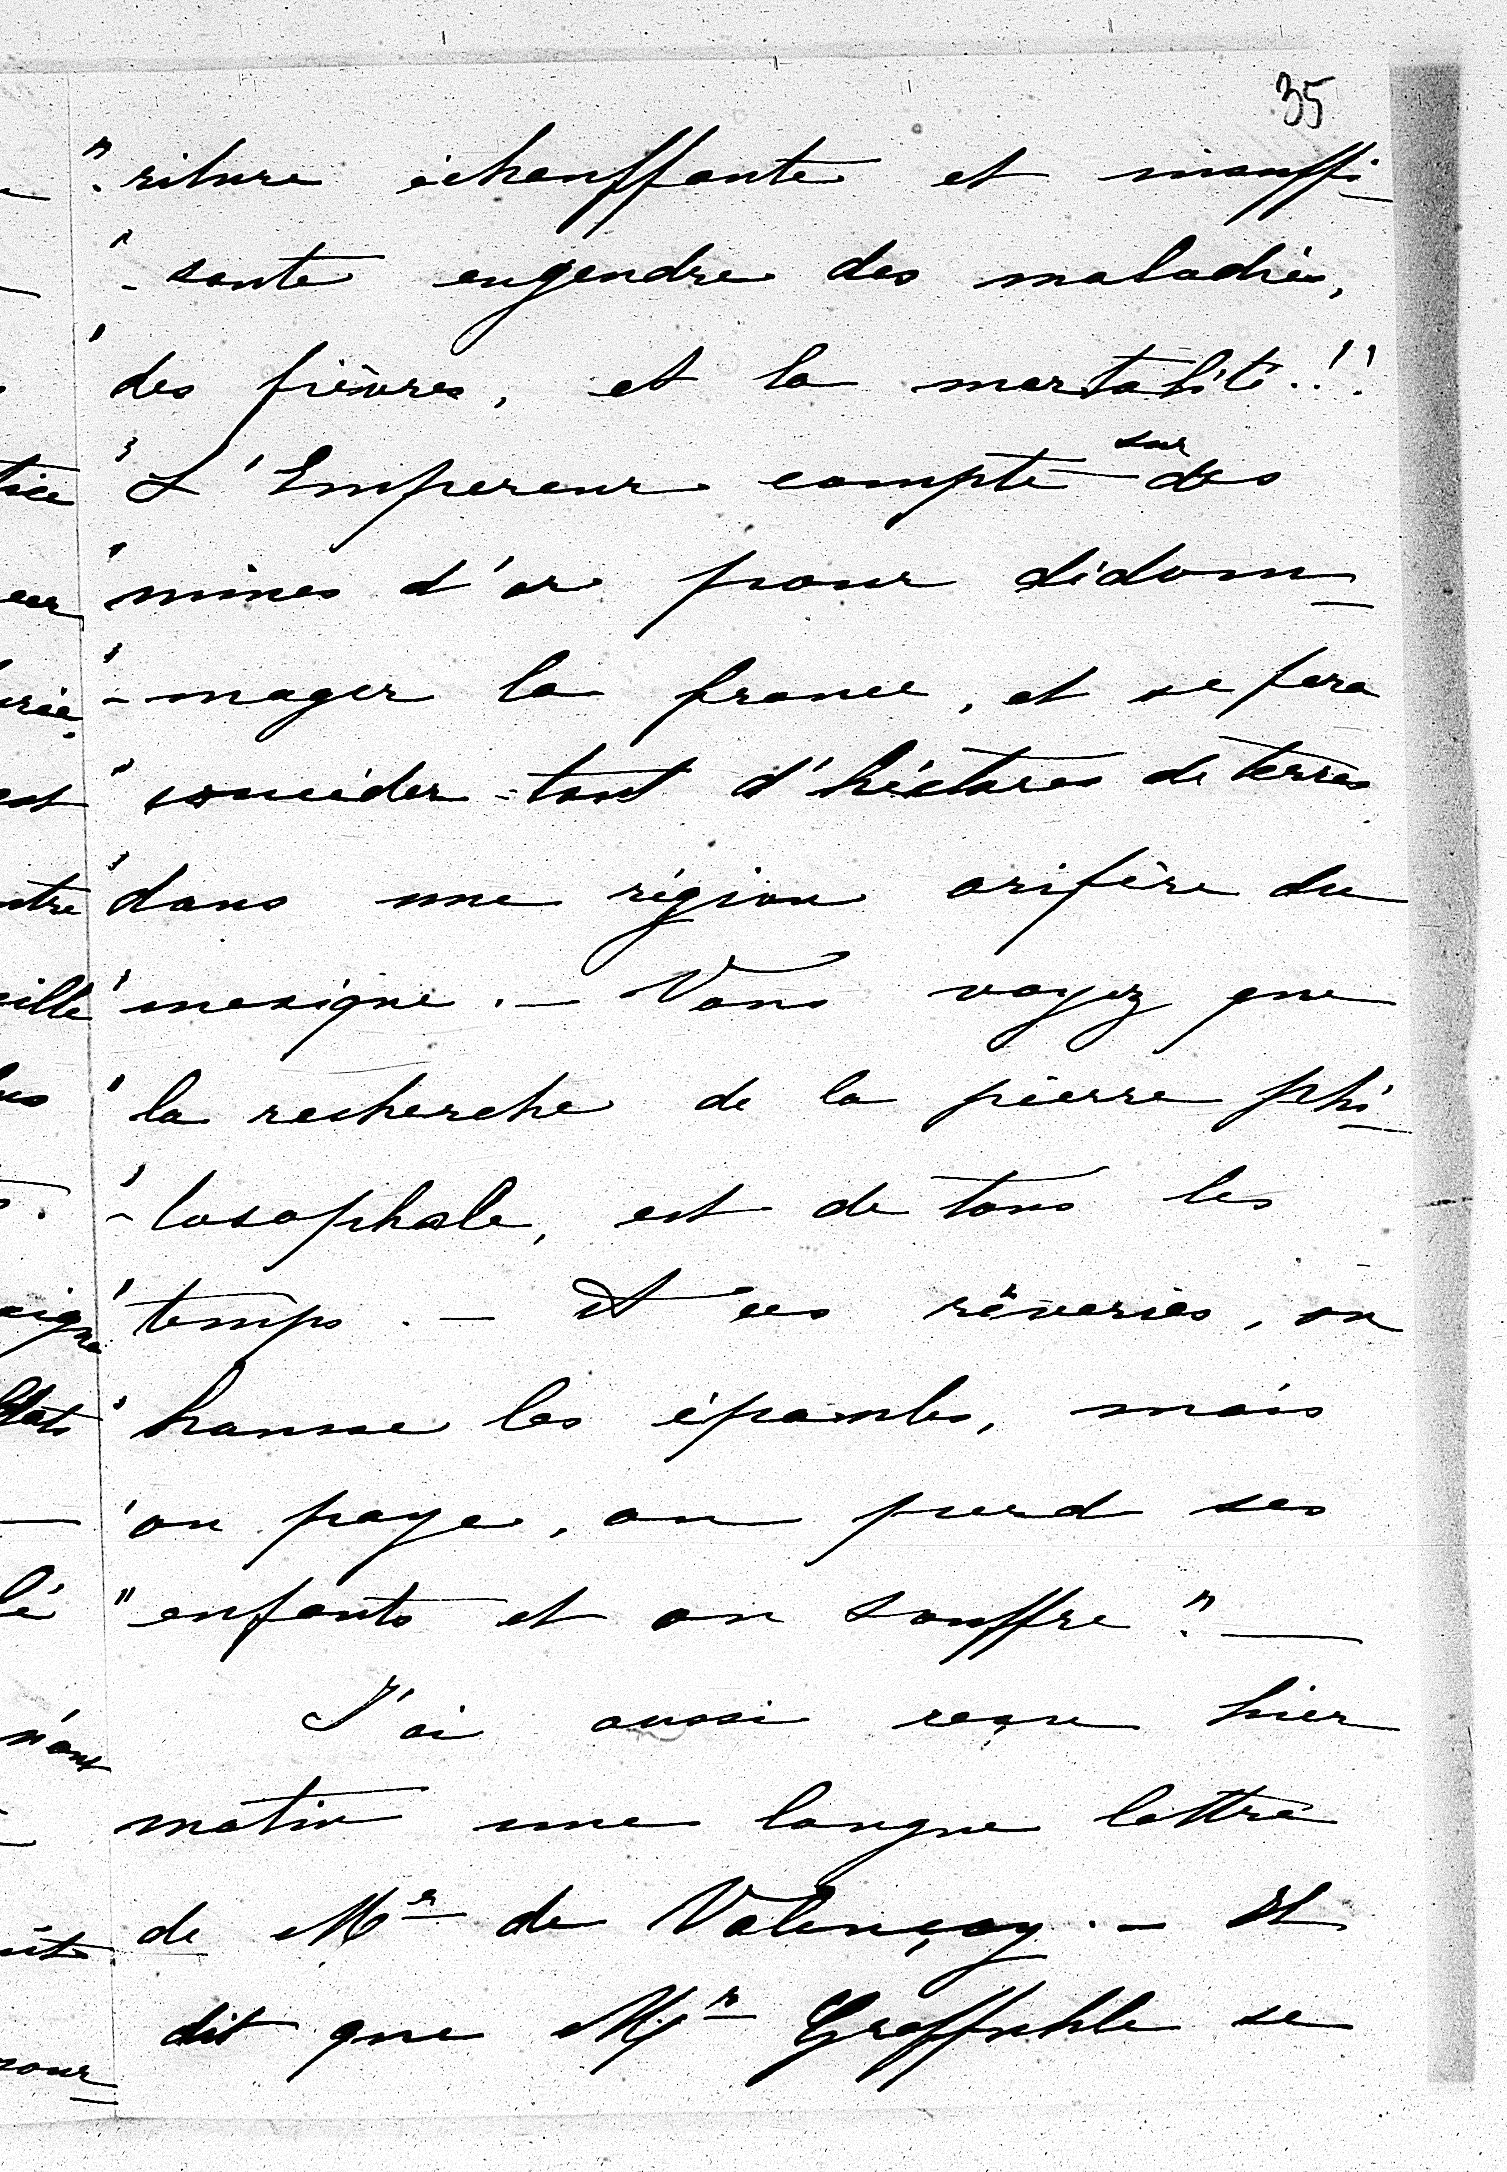 35
". riture échauffante et insuffi-
"- sante engendre des maladies,
" des fièvres, et la mortalité.!!
" L'Empereur compte sur des
" mines d'or pour dédom-
"- mager la france, et se fera
" concéder tant d'héctares de terres
" dans une région orifère du
" mexique. — Vous voyez que
" la recherche de la pierre phi-
"- losophale, est de tous les
" temps. — Et ces rêveries, on
" hausse les épaules, mais
" on paye, on perd ses
" enfants et on souffre". —
J'ai aussi reçu hier
matin une longue lettre
de Mr de Valençay. — Il
dit que Mr Greffuhle se